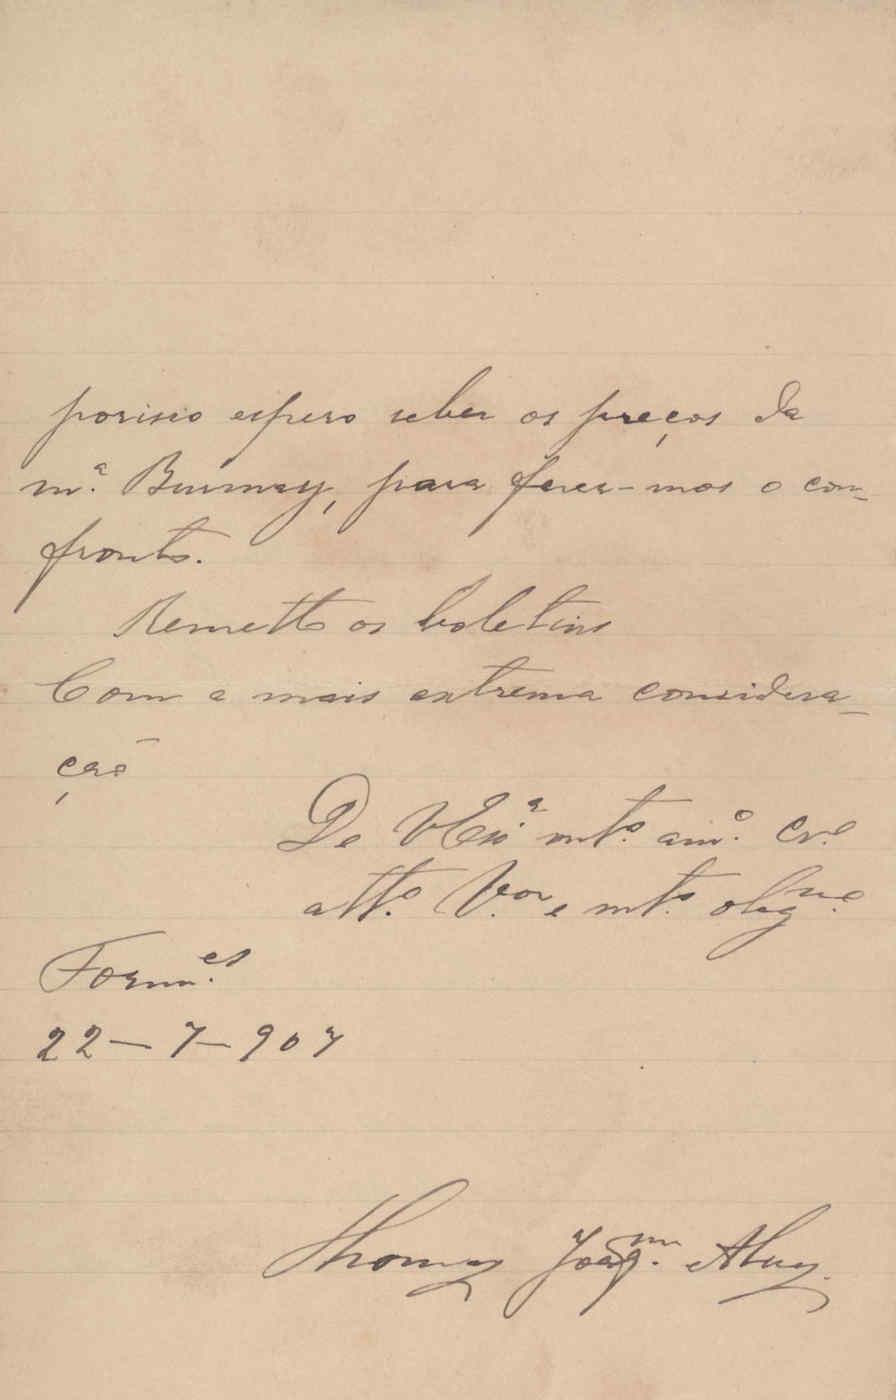 porisso espero saber os preços da
m.ª Burnay, para fazer-mos o con-
fronto.
Remetto os boletins
Com a mais extrema considera-
ção
De V Exª mt.º am.º Cr.º
att.º V.or e mt.º obrg.mo
Forn.es
22-7-907
Thomaz Joaq.m Alvez